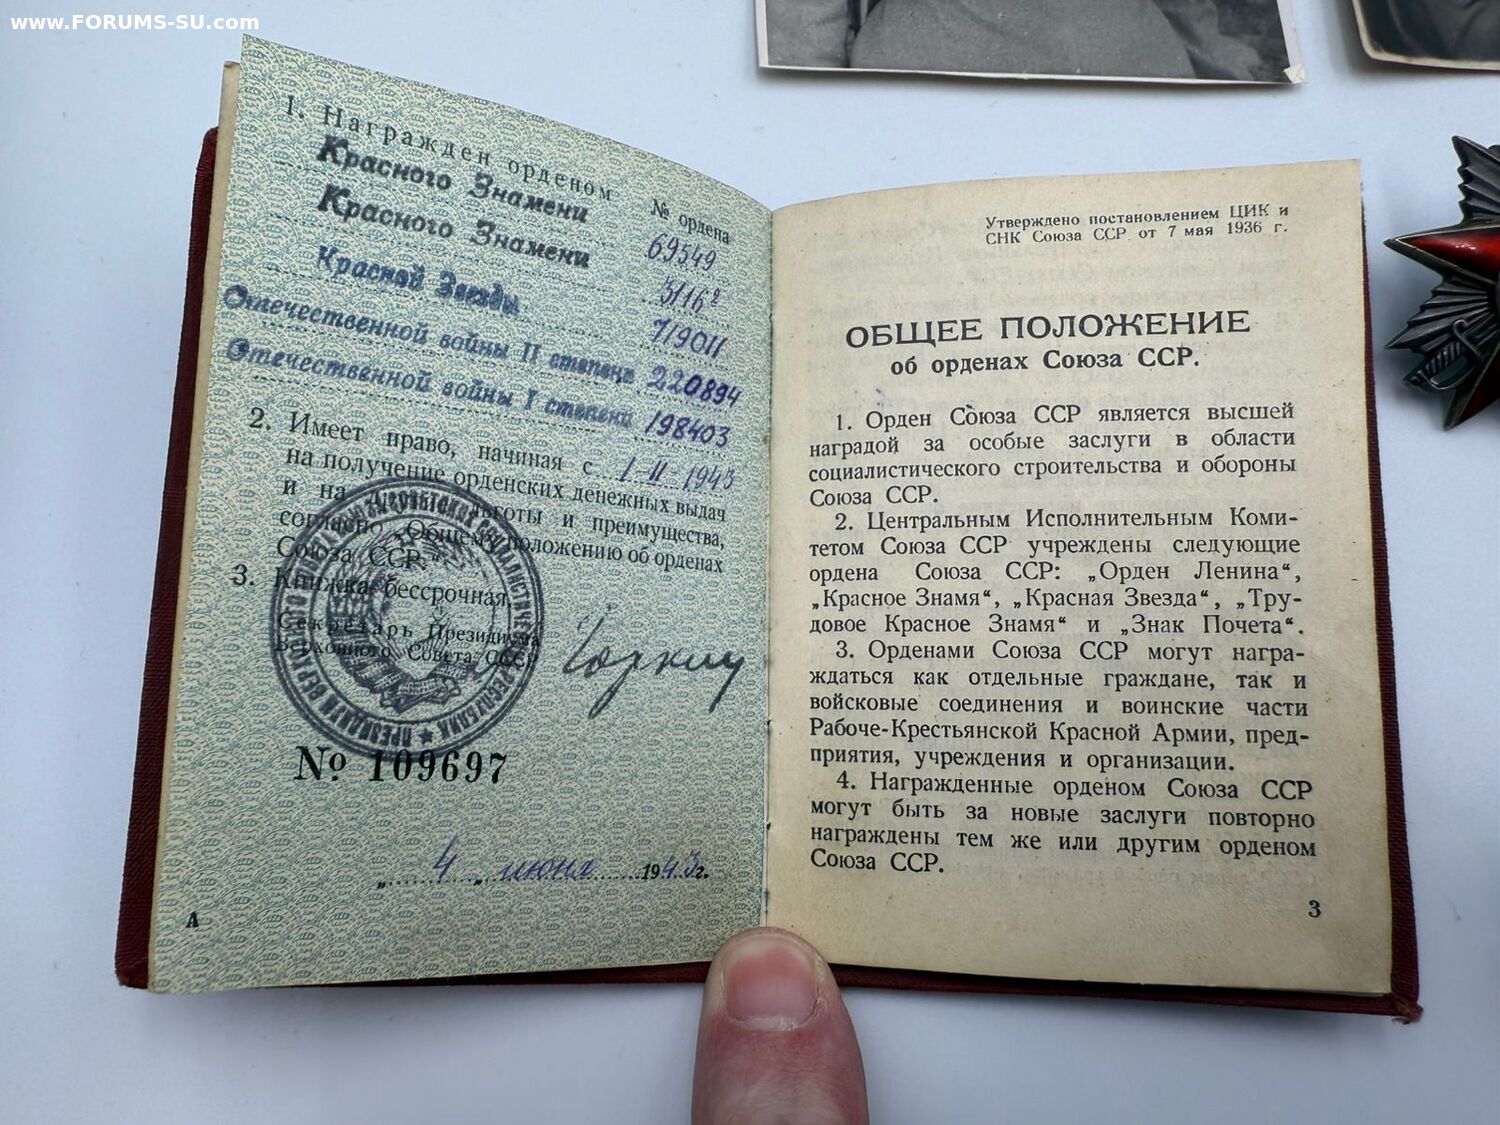 www.FORUMS-SU.com
1. Награжден орденом
№ ордена
Красного Знамени 69549
Красного Знамени 3/16²
Красной Звезды 719011
Отечественной войны II степени 220894
Отечественной войны I степени 198403
2. Имеет право, начиная с 1-II-1943
на получение орденских денежных выдач
и на льготы и преимущества,
согласно „Общему положению об орденах
Союза ССР.“
3. Книжка бессрочная.
Секретарь Президиума
Верховного Совета СССР
Горкин
№ 109697
„ 4 „ июня 1943г.
А
Утверждено постановлением ЦИК и
СНК Союза ССР от 7 мая 1936 г.
ОБЩЕЕ ПОЛОЖЕНИЕ
об орденах Союза ССР.
1. Орден Союза ССР является высшей
наградой за особые заслуги в области
социалистического строительства и обороны
Союза ССР.
2. Центральным Исполнительным Коми-
тетом Союза ССР учреждены следующие
ордена Союза ССР: „Орден Ленина“,
„Красное Знамя“, „Красная Звезда“, „Тру-
довое Красное Знамя“ и „Знак Почета“.
3. Орденами Союза ССР могут награ-
ждаться как отдельные граждане, так и
войсковые соединения и воинские части
Рабоче-Крестьянской Красной Армии, пред-
приятия, учреждения и организации.
4. Награжденные орденом Союза ССР
могут быть за новые заслуги повторно
награждены тем же или другим орденом
Союза ССР.
3